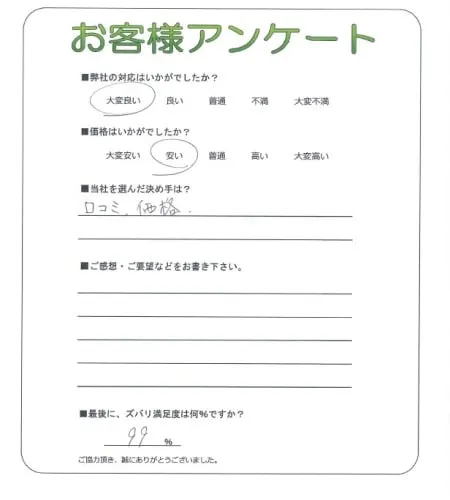 お客様アンケート
■弊社の対応はいかがでしたか？
大変良い 良い 普通 不満 大変不満
■価格はいかがでしたか？
大変安い 安い 普通 高い 大変高い
■当社を選んだ決め手は？
口コミ、価格.
■ご感想・ご要望などをお書き下さい。
■最後に、ズバリ満足度は何%ですか？
99 %
ご協力頂き、誠にありがとうございました。